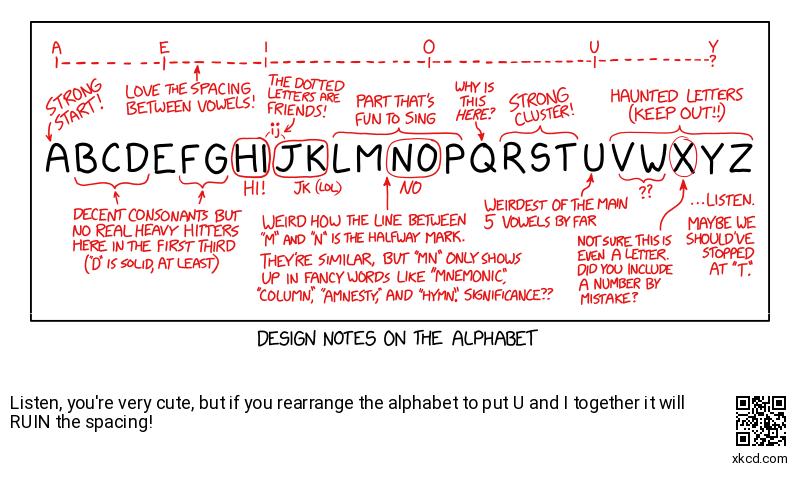 A E I O U Y
?
STRONG
START!
LOVE THE SPACING
BETWEEN VOWELS!
THE DOTTED
LETTERS ARE
FRIENDS!
PART THAT'S
FUN TO SING
WHY IS
THIS
HERE?
STRONG
CLUSTER!
HAUNTED LETTERS
(KEEP OUT!!)
ABCDEFGHIJKLMNOPQRSTUVWXYZ
HI!
JK (LOL)
NO
??
DECENT CONSONANTS BUT
NO REAL HEAVY HITTERS
HERE IN THE FIRST THIRD
("D" IS SOLID, AT LEAST)
WEIRD HOW THE LINE BETWEEN
"M" AND "N" IS THE HALFWAY MARK.
THEY'RE SIMILAR, BUT "MN" ONLY SHOWS
UP IN FANCY WORDS LIKE "MNEMONIC,"
"COLUMN," "AMNESTY," AND "HYMN." SIGNIFICANCE??
WEIRDEST OF THE MAIN
5 VOWELS BY FAR
NOT SURE THIS IS
EVEN A LETTER.
DID YOU INCLUDE
A NUMBER BY
MISTAKE?
...LISTEN.
MAYBE WE
SHOULD'VE
STOPPED
AT "T."
DESIGN NOTES ON THE ALPHABET
Listen, you're very cute, but if you rearrange the alphabet to put U and I together it will
RUIN the spacing!
xkcd.com